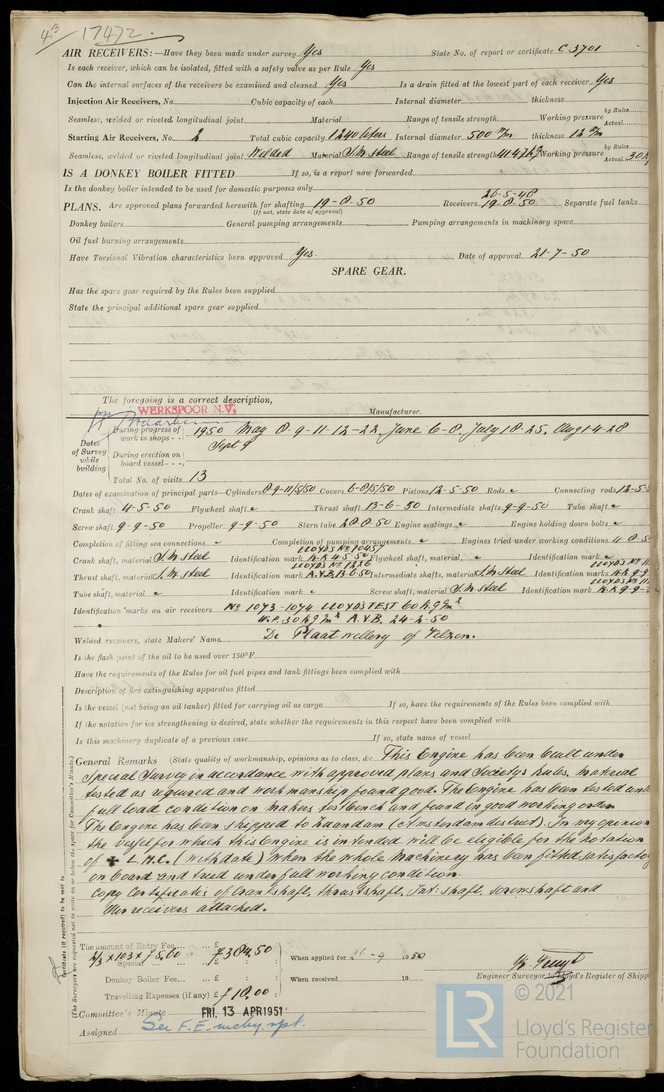 4/3 17472.
AIR RECEIVERS:—Have they been made under survey Yes State No. of report or certificate C 3701
Is each receiver, which can be isolated, fitted with a safety valve as per Rule Yes
Can the internal surfaces of the receivers be examined and cleaned Yes Is a drain fitted at the lowest part of each receiver Yes
Injection Air Receivers, No. Cubic capacity of each Internal diameter thickness
Seamless, welded or riveted longitudinal joint Material Range of tensile strength Working pressure by Rules Actual
Starting Air Receivers, No. 2 Total cubic capacity 1240 liters Internal diameter 500 m/m thickness 12 m/m
Seamless, welded or riveted longitudinal joint Welded Material S.M. Steel Range of tensile strength 41 47 kg Working pressure by Rules Actual 30 k
IS A DONKEY BOILER FITTED If so, is a report now forwarded
Is the donkey boiler intended to be used for domestic purposes only
PLANS. Are approved plans forwarded herewith for shafting 19-8-50 Receivers 26-5-48 19-8-50 Separate fuel tanks
(If not, state date of approval)
Donkey boilers General pumping arrangements Pumping arrangements in machinery space
Oil fuel burning arrangements
Have Torsional Vibration characteristics been approved Yes Date of approval 21-7-50
SPARE GEAR.
Has the spare gear required by the Rules been supplied
State the principal additional spare gear supplied
The foregoing is a correct description,
WERKSPOOR N.V. Manufacturer.
Dates of Survey while building
During progress of work in shops - - 1950 May 8-9-11-12-22, June 6-8, July 18-25, Aug 1-4-28
Sept 9
During erection on board vessel - - -
Total No. of visits 13
Dates of examination of principal parts—Cylinders 8-9-11/5/50 Covers 6-8/5/50 Pistons 12-5-50 Rods Connecting rods 12-5-
Crank shaft 4-5-50 Flywheel shaft Thrust shaft 13-6-50 Intermediate shafts 9-9-50 Tube shaft
Screw shaft 9-9-50 Propeller 9-9-50 Stern tube 28-8-50 Engine seatings Engine holding down bolts
Completion of fitting sea connections Completion of pumping arrangements Engines tried under working conditions
Crank shaft, material S.M. steel Identification mark LLOYDS No 10457 4-5-50 Flywheel shaft, material Identification mark
Thrust shaft, material S.M. steel Identification mark LLOYDS No 1226 A.V.B. 13-6-50 Intermediate shafts, material S.M. Steel Identification marks LLOYDS No
Tube shaft, material Identification mark Screw shaft, material S.M. Steel Identification mark LLOYDS No
Identification marks on air receivers No 1073-1074 LLOYDS TEST 60 kg/m²
W.P. 30 kg/m² A.V.B. 24-2-50
Welded receivers, state Makers' Name De Plaatwellery of Velzen.
Is the flash point of the oil to be used over 150°F.
Have the requirements of the Rules for oil fuel pipes and tank fittings been complied with
Description of fire extinguishing apparatus fitted
Is the vessel (not being an oil tanker) fitted for carrying oil as cargo If so, have the requirements of the Rules been complied with
If the notation for ice strengthening is desired, state whether the requirements in this respect have been complied with
Is this machinery duplicate of a previous case If so, state name of vessel
General Remarks (State quality of workmanship, opinions as to class, &c. This Engine has been built under
Special Survey in accordance with approved plans and Society's Rules. Material
tested as required and workmanship found good. The Engine has been tested und
full load condition on makers testbench and found in good working order.
The Engine has been shipped to Zaandam (Amsterdam district). In my opinion
the vessel for which this Engine is intended will be eligible for the notation
of ✠ L.M.C. (with date) when the whole Machinery has been fitted satisfactory
on board and tried under full working condition.
Copy Certificates of Crankshaft, thrustshaft, Int. shaft, screwshaft and
Airreceivers attached.
Certificate (if required) to be sent to
(The Surveyors are requested not to write on or below the space for Committee's Minute.)
The amount of Entry Fee... £
2/3 x 103 x f5,60 f 384.50
Special £
When applied for 26-9 1950
Donkey Boiler Fee... £
When received 19
Travelling Expenses (if any) £ f 10,00
Engineer Surveyor to Lloyd's Register of Shipp
Committee's Minute FRI. 13 APR 1951
Assigned See F.E. mchy. rpt.
LR © 2021
Lloyd's Register
Foundation